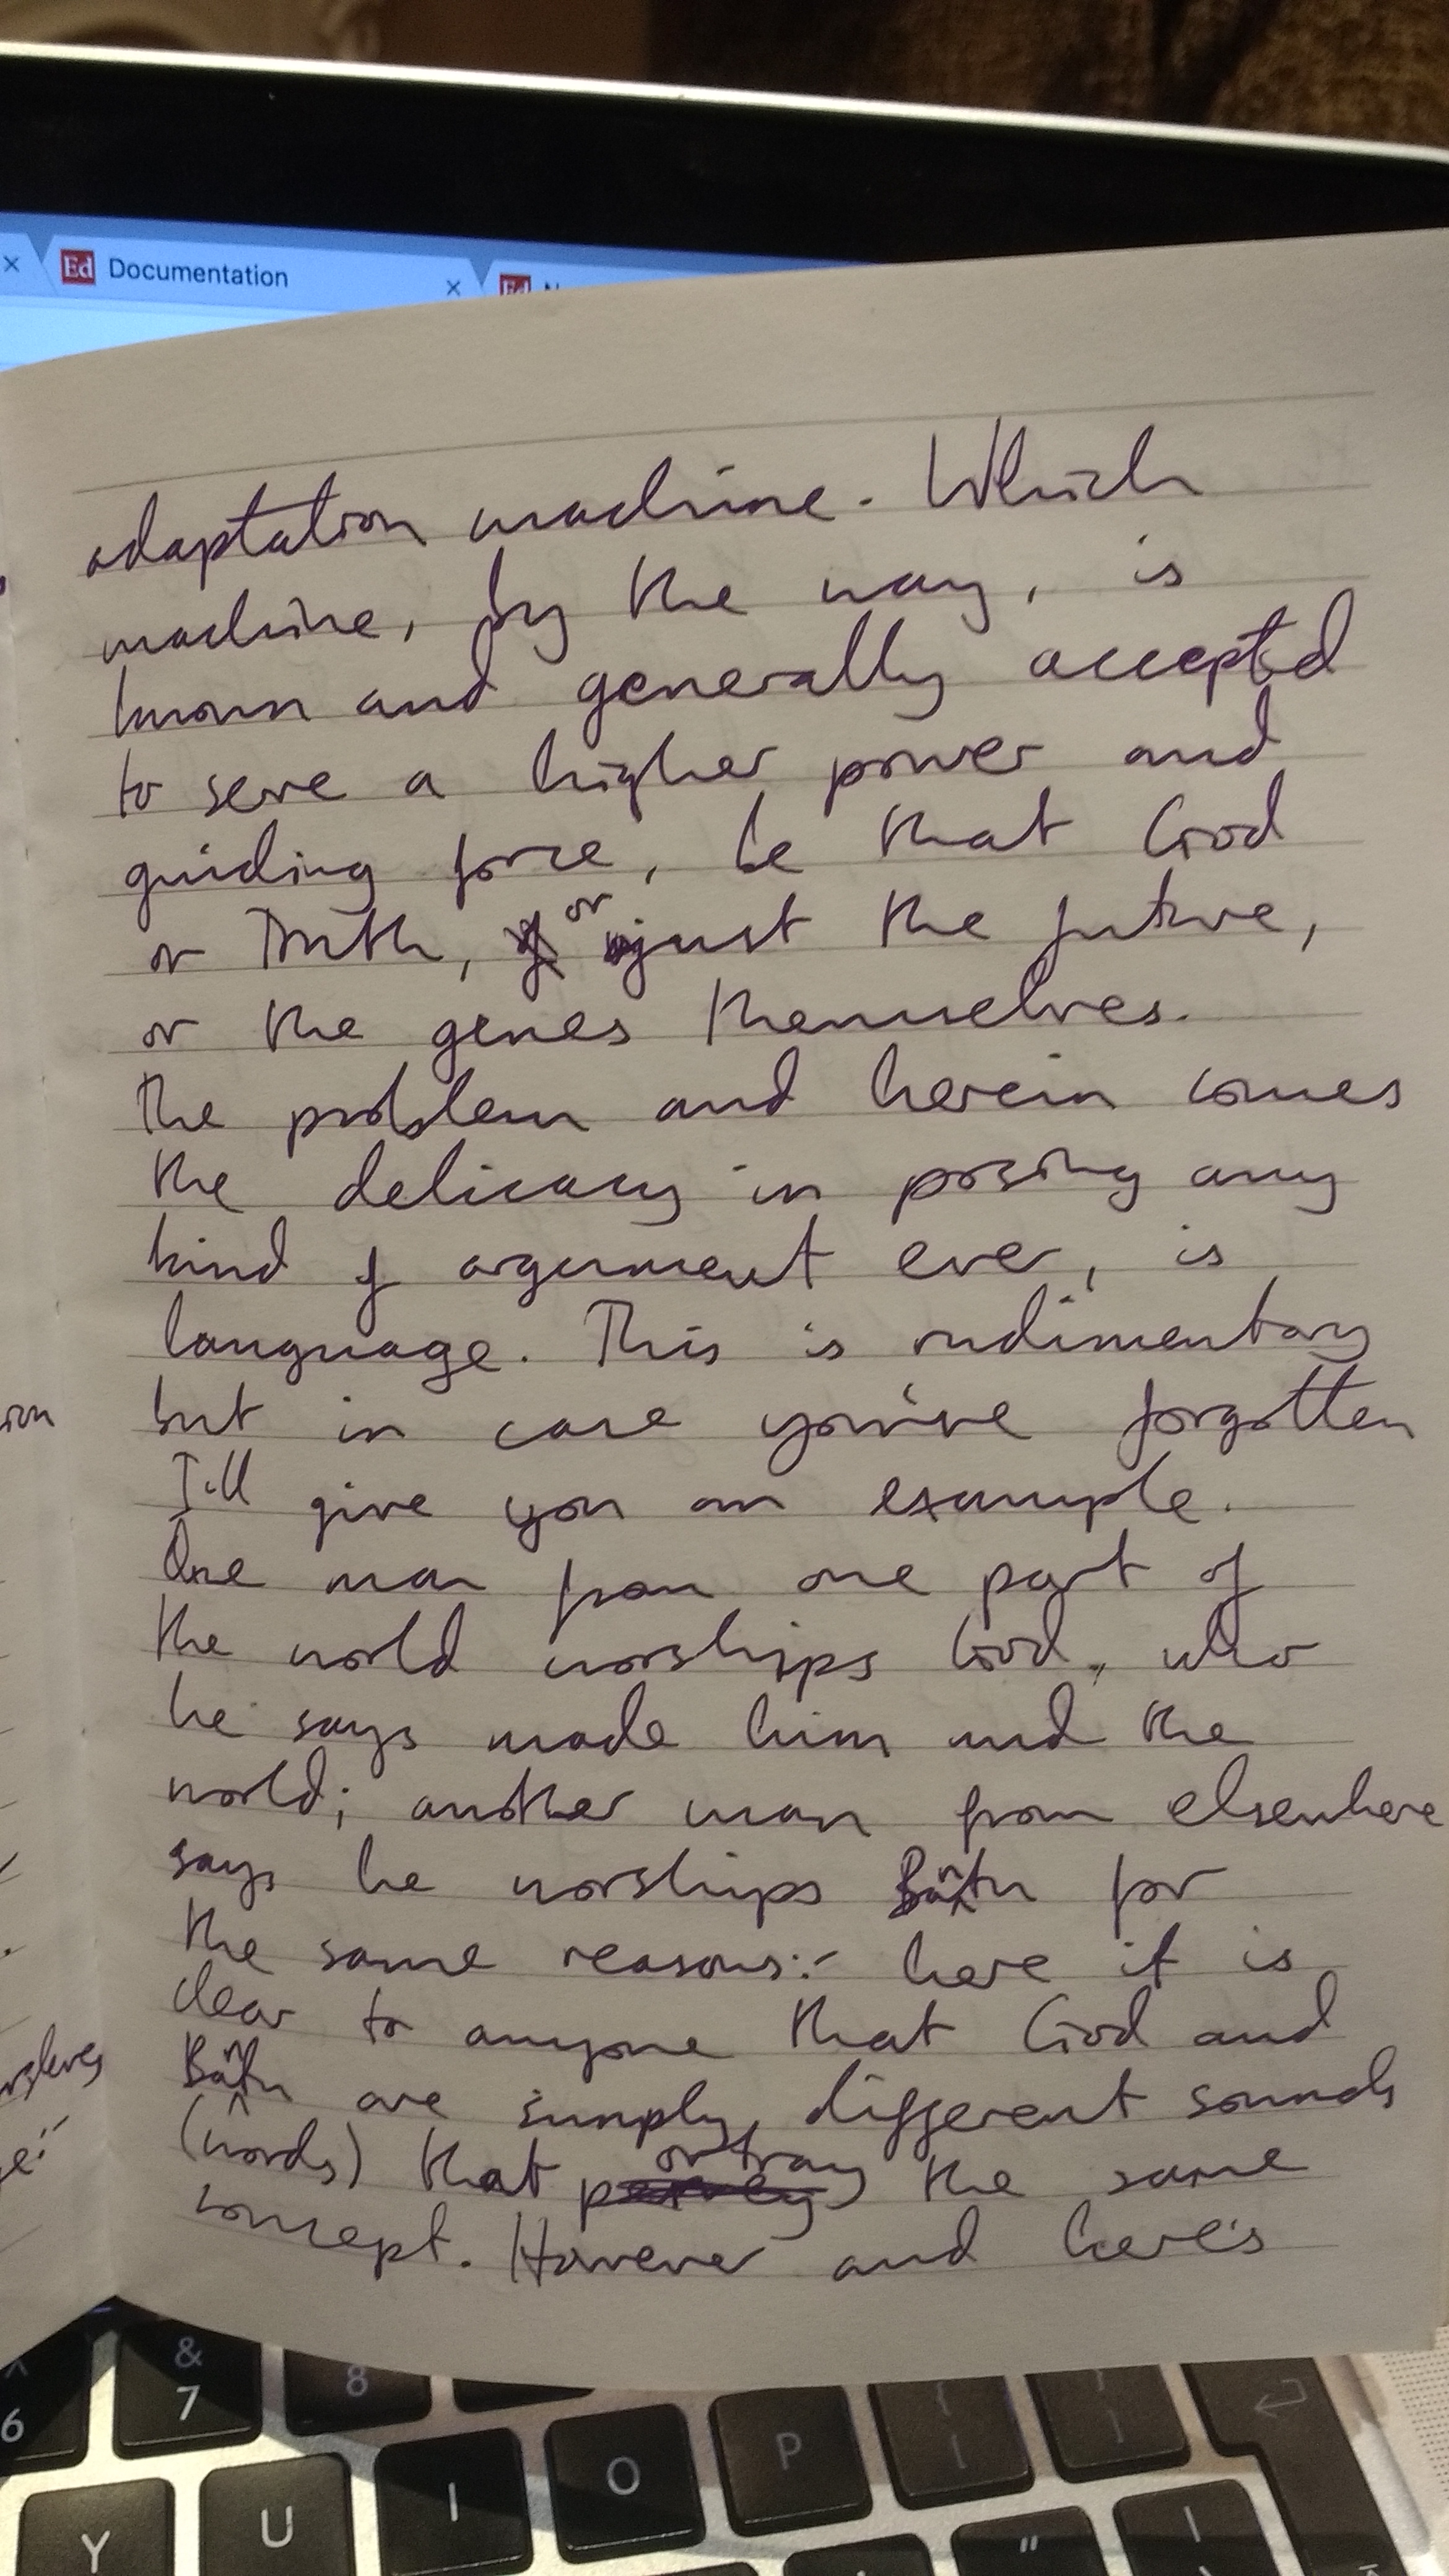 Documentation
adaptation machine. Which
machine, by the way, is
known and generally accepted
to serve a higher power and
guiding force, be that God
or Truth, or just the future,
or the genes themselves.
The problem and herein comes
the delicacy in posing any
kind of argument ever, is
language. This is rudimentary
but in case you've forgotten
I'll give you an example.
One man from one part of
the world worships God, who
he says made him and the
world; another man from elsewhere
says he worships for
the same reasons:- here it is
clear to anyone that God and
are simply, different sounds
(words) that portray the same
concept. However and here's
&
7
8
6
Y
U
I
O
P
{
[
}
]
"